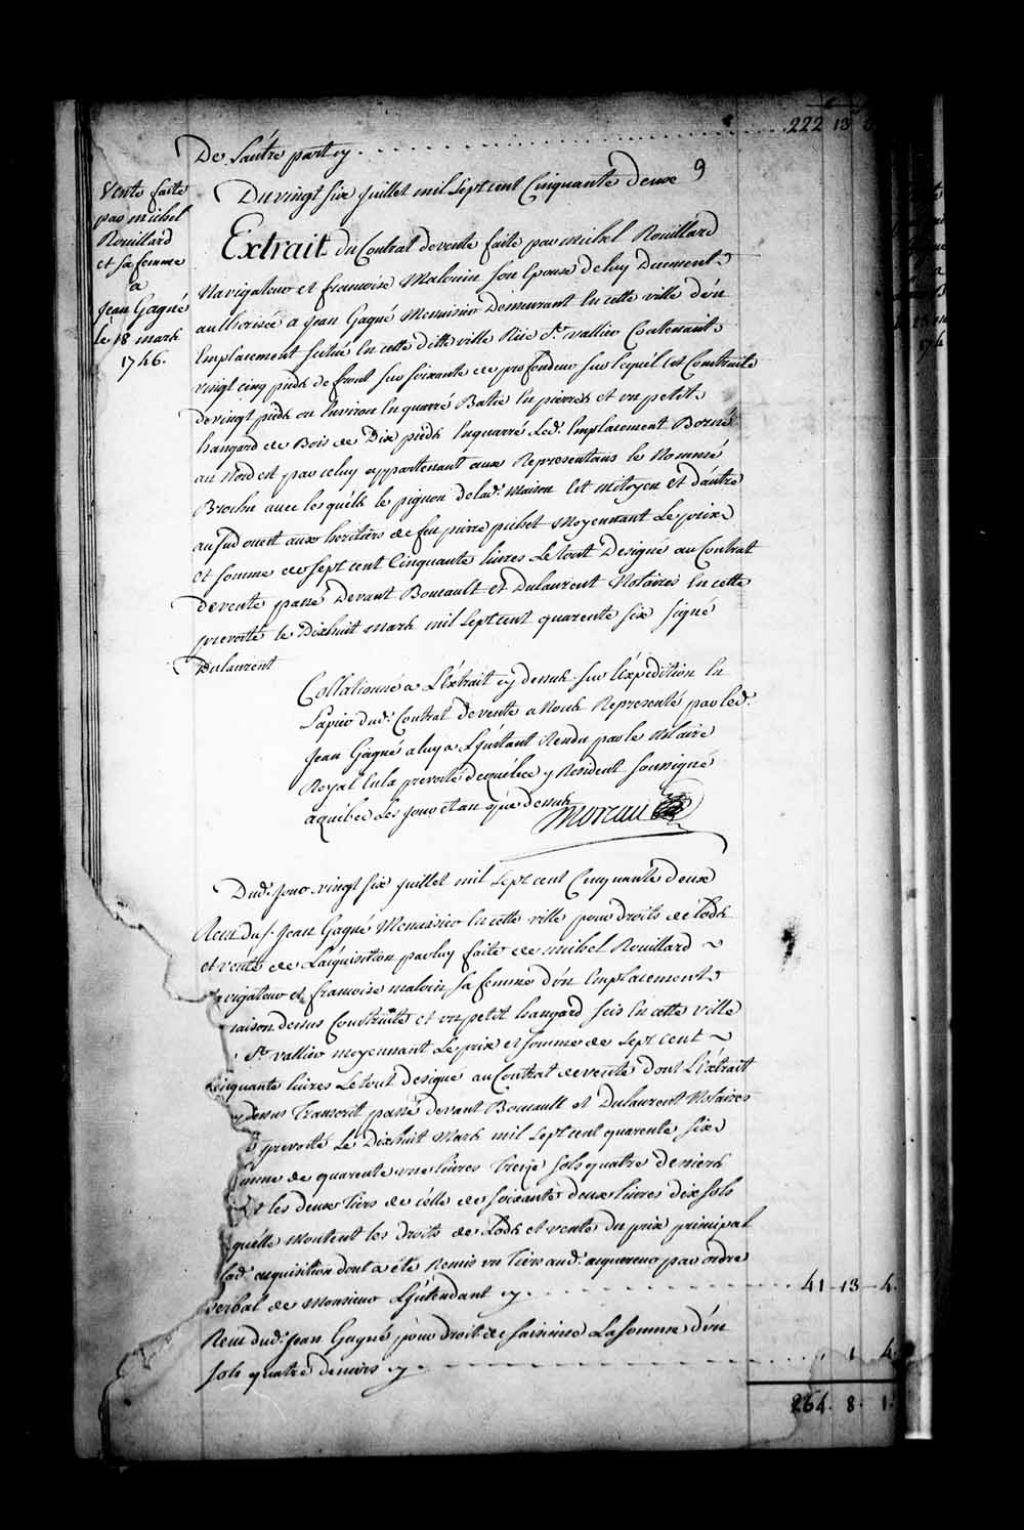 De L'autre part cy . . . . . . . . . . . . 222 13
9
Du vingt six Juillet mil Sept cent Cinquante deux
Vente faite
par michel
Rouillard
et sa femme
a
Jean Gagné
le 18 mars
1746.
Extrait du Contrat de vente faite par michel Rouillard
Navigateur et francoise Malouin son Epouse de luy Duement
authorisée a Jean Gagné Menuisier Demeurant En cette ville d'un
Emplacement situé En cette ditte ville Rüe St. vallier Contenant
vingt cinq pieds de front sur soixante de profondeur sur lequel est Construite
de vingt pieds ou Environ En quarré Batie En pierres et un petit
hangard de Bois de Dix pieds En quarré Led. Emplacement Borné
au Nord est par celuy appartenant aux Representans le Nommé
Brochu avec lesquels le pignon de lad. Maison Est mitoyen et d'autre
au sud ouest aux heritiers de feu pierre pichet Moyennant Le prix
et somme de sept cent Cinquante livres Le tout Designé au Contrat
de vente passé Devant Boucault et Dulaurent Notaires En cette
prevosté le Dixhuit mars mil Sept cent quarente six signé
Dulaurent
Collationné a L'Extrait cy dessus sur L'expedition En
papier dud. Contrat de vente a Nous Representé par led.
Jean Gagné a luy a L'instant Rendu par le Notaire
Royal En la prevosté de quebec y Resident soussigné
a quebec Les jour et an que dessus
Moreau
Dud. Jour vingt six Juillet mil Sept cent Cinquante deux
Recu du s. Jean Gagné Menuisier En cette ville pour droits de Lods
et vente de L'acquisition par luy faite de michel Rouillard
avigateur et francoise maloin sa femme d'un Emplacement
maison dessus Construite et un petit hangard scis En cette ville
St. vallier moyennant Le prix et somme de Sept cent
Cinquante livres Le tout designé au Contrat de vente dont L'Extrait
dessus Transcrit passé devant Boucault et Dulaurent Notaires
prevosté Le Dixhuit Mars mil Sept cent quarente six
somme de quarente une livres Treize sols quatre deniers
les deux tiers de celle de soixante deux livres dix sols
quelle montent les Droits de Lods et vente du prix principal
lad. acquisition dont a été Remis un Tiers aud. acquereur par ordre
verbal de Monsieur L'Intendant cy . . . . . . . . 41 13 4.
Recu dud. Jean Gagné pour droit de saisine La somme d'un
sols quatre deniers cy . . . . . . . . 1 4.
264. 8. 1.